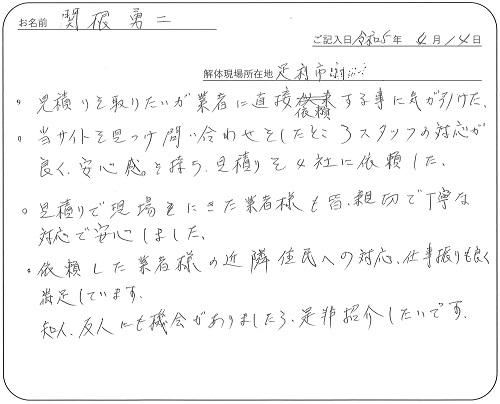 お名前 関根 勇二
ご記入日 令和5年 4月14日
解体現場所在地 足利市
・見積りを取りたいが業者に直接依頼する事に気が引けた、
・当サイトを見つけ問い合わせをしたところスタッフの対応が
良く、安心感を持ち、見積りを4社に依頼した、
・見積りで現場をにきた業者様も皆、親切で丁寧な
対応で安心しました、
・依頼した業者様の近隣住民への対応、仕事振りも良く
満足しています、
知人、友人にも機会がありましたら、是非紹介したいです、